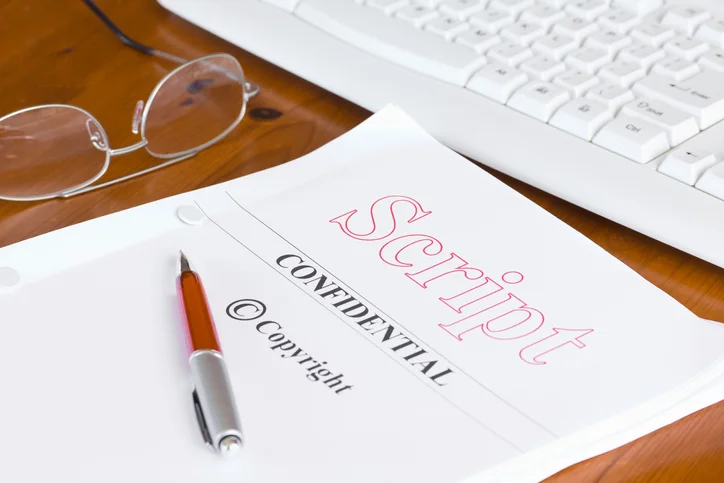 Script
CONFIDENTIAL
© Copyright
Ctrl